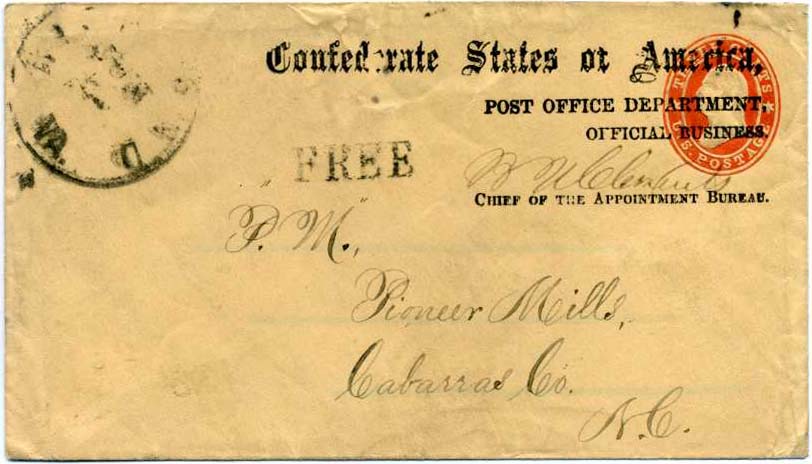 Confederate States of America,
POST OFFICE DEPARTMENT,
OFFICIAL BUSINESS.
THREE CENTS
U.S. POSTAGE
B N Clements
CHIEF OF THE APPOINTMENT BUREAU.
VA.
FREE
P. M.,
Pioneer Mills,
Cabarras Co.
N.C.